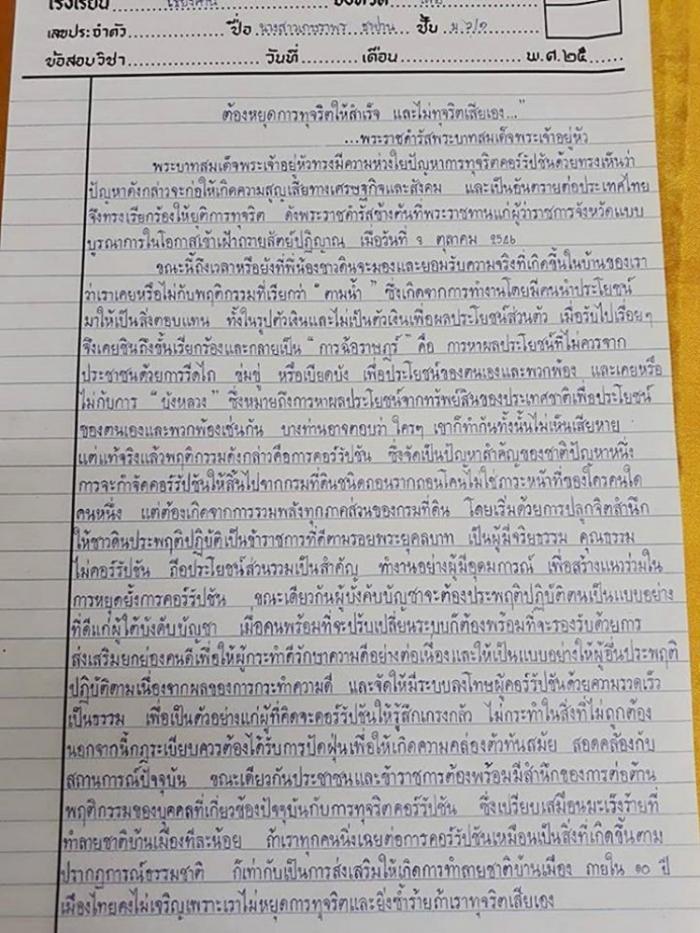 โรงเรียน เชียงคาน จังหวัด เลย
เลขประจำตัว ชื่อ นางสาวเกษราพร ชั้น ม.๖/๑
ข้อสอบวิชา วันที่ เดือน พ.ศ.๒๕
ต้องหยุดการทุจริตให้สำเร็จ และไม่ทุจริตเสียเอง..."
...พระราชดำรัสพระบาทสมเด็จพระเจ้าอยู่หัว
พระบาทสมเด็จพระเจ้าอยู่หัวทรงมีความห่วงใยปัญหาการทุจริตคอร์รัปชันด้วยทรงเห็นว่า
ปัญหาดังกล่าวจะก่อให้เกิดความสูญเสียทางเศรษฐกิจและสังคม และเป็นอันตรายต่อประเทศไทย
จึงทรงเรียกร้องให้ยุติการทุจริต ดังพระราชดำรัสข้างต้นที่พระราชทานแก่ผู้ว่าราชการจังหวัดแบบ
บูรณาการในโอกาสเข้าเฝ้าถวายสัตย์ปฏิญาณ เมื่อวันที่ ๘ ตุลาคม ๒๕๔๖
ขณะนี้ถึงเวลาหรือยังที่พี่น้องชาวดินจะมองและยอมรับความจริงที่เกิดขึ้นในบ้านของเรา
ว่าเราเคยหรือไม่กับพฤติกรรมที่เรียกว่า "ตามน้ำ" ซึ่งเกิดจากการทำงานโดยมีคนนำประโยชน์
มาให้เป็นสิ่งตอบแทน ทั้งในรูปตัวเงินและไม่เป็นตัวเงินเพื่อผลประโยชน์ส่วนตัว เมื่อรับไปเรื่อยๆ
จึงเคยชินถึงขั้นเรียกร้องและกลายเป็น "การฉ้อราษฎร์" คือ การหาผลประโยชน์ที่ไม่ควรจาก
ประชาชนด้วยการรีดไถ ข่มขู่ หรือเบียดบัง เพื่อประโยชน์ของตนเองและพวกพ้อง และเคยหรือ
ไม่กับการ "บังหลวง" ซึ่งหมายถึงการหาผลประโยชน์จากทรัพย์สินของประเทศชาติเพื่อประโยชน์
ของตนเองและพวกพ้องเช่นกัน บางท่านอาจตอบว่า ใครๆ เขาก็ทำกันทั้งนั้นไม่เห็นเสียหาย
แต่แท้จริงแล้วพฤติกรรมดังกล่าวคือการคอร์รัปชัน ซึ่งจัดเป็นปัญหาสำคัญของชาติปัญหาหนึ่ง
การจะกำจัดคอร์รัปชันให้สิ้นไปจากกรมที่ดินชนิดถอนรากถอนโคนไม่ใช่ภาระหน้าที่ของใครคนใด
คนหนึ่ง แต่ต้องเกิดจากการรวมพลังทุกภาคส่วนของกรมที่ดิน โดยเริ่มด้วยการปลูกจิตสำนึก
ให้ชาวดินประพฤติปฏิบัติเป็นข้าราชการที่ดีตามรอยพระยุคลบาท เป็นผู้มีจริยธรรม คุณธรรม
ไม่คอร์รัปชัน ถือประโยชน์ส่วนรวมเป็นสำคัญ ทำงานอย่างผู้มีอุดมการณ์ เพื่อสร้างแนวร่วมใน
การหยุดยั้งการคอร์รัปชัน ขณะเดียวกันผู้บังคับบัญชาจะต้องประพฤติปฏิบัติตนเป็นแบบอย่าง
ที่ดีแก่ผู้ใต้บังคับบัญชา เมื่อคนพร้อมที่จะปรับเปลี่ยนระบบก็ต้องพร้อมที่จะรองรับด้วยการ
ส่งเสริมยกย่องคนดีเพื่อให้ผู้กระทำดีรักษาความดีอย่างต่อเนื่องและให้เป็นแบบอย่างให้ผู้อื่นประพฤติ
ปฏิบัติตามเนื่องจากผลของการกระทำความดี และจัดให้มีระบบลงโทษผู้คอร์รัปชันด้วยความรวดเร็ว
เป็นธรรม เพื่อเป็นตัวอย่างแก่ผู้ที่คิดจะคอร์รัปชันให้รู้สึกเกรงกลัว ไม่กระทำในสิ่งที่ไม่ถูกต้อง
นอกจากนี้กฎระเบียบควรต้องได้รับการปัดฝุ่นเพื่อให้เกิดความคล่องตัวทันสมัย สอดคล้องกับ
สถานการณ์ปัจจุบัน ขณะเดียวกันประชาชนและข้าราชการต้องพร้อมมีสำนึกของการต่อต้าน
พฤติกรรมของบุคคลที่เกี่ยวข้องปัจจุบันกับการทุจริตคอร์รัปชัน ซึ่งเปรียบเสมือนมะเร็งร้ายที่
ทำลายชาติบ้านเมืองทีละน้อย ถ้าเราทุกคนนิ่งเฉยต่อการคอร์รัปชันเหมือนเป็นสิ่งที่เกิดขึ้นตาม
ปรากฏการณ์ธรรมชาติ ก็เท่ากับเป็นการส่งเสริมให้เกิดการทำลายชาติบ้านเมือง ภายใน ๑๐ ปี
เมืองไทยคงไม่เจริญเพราะเราไม่หยุดการทุจริตและยิ่งซ้ำร้ายถ้าเราทุจริตเสียเอง